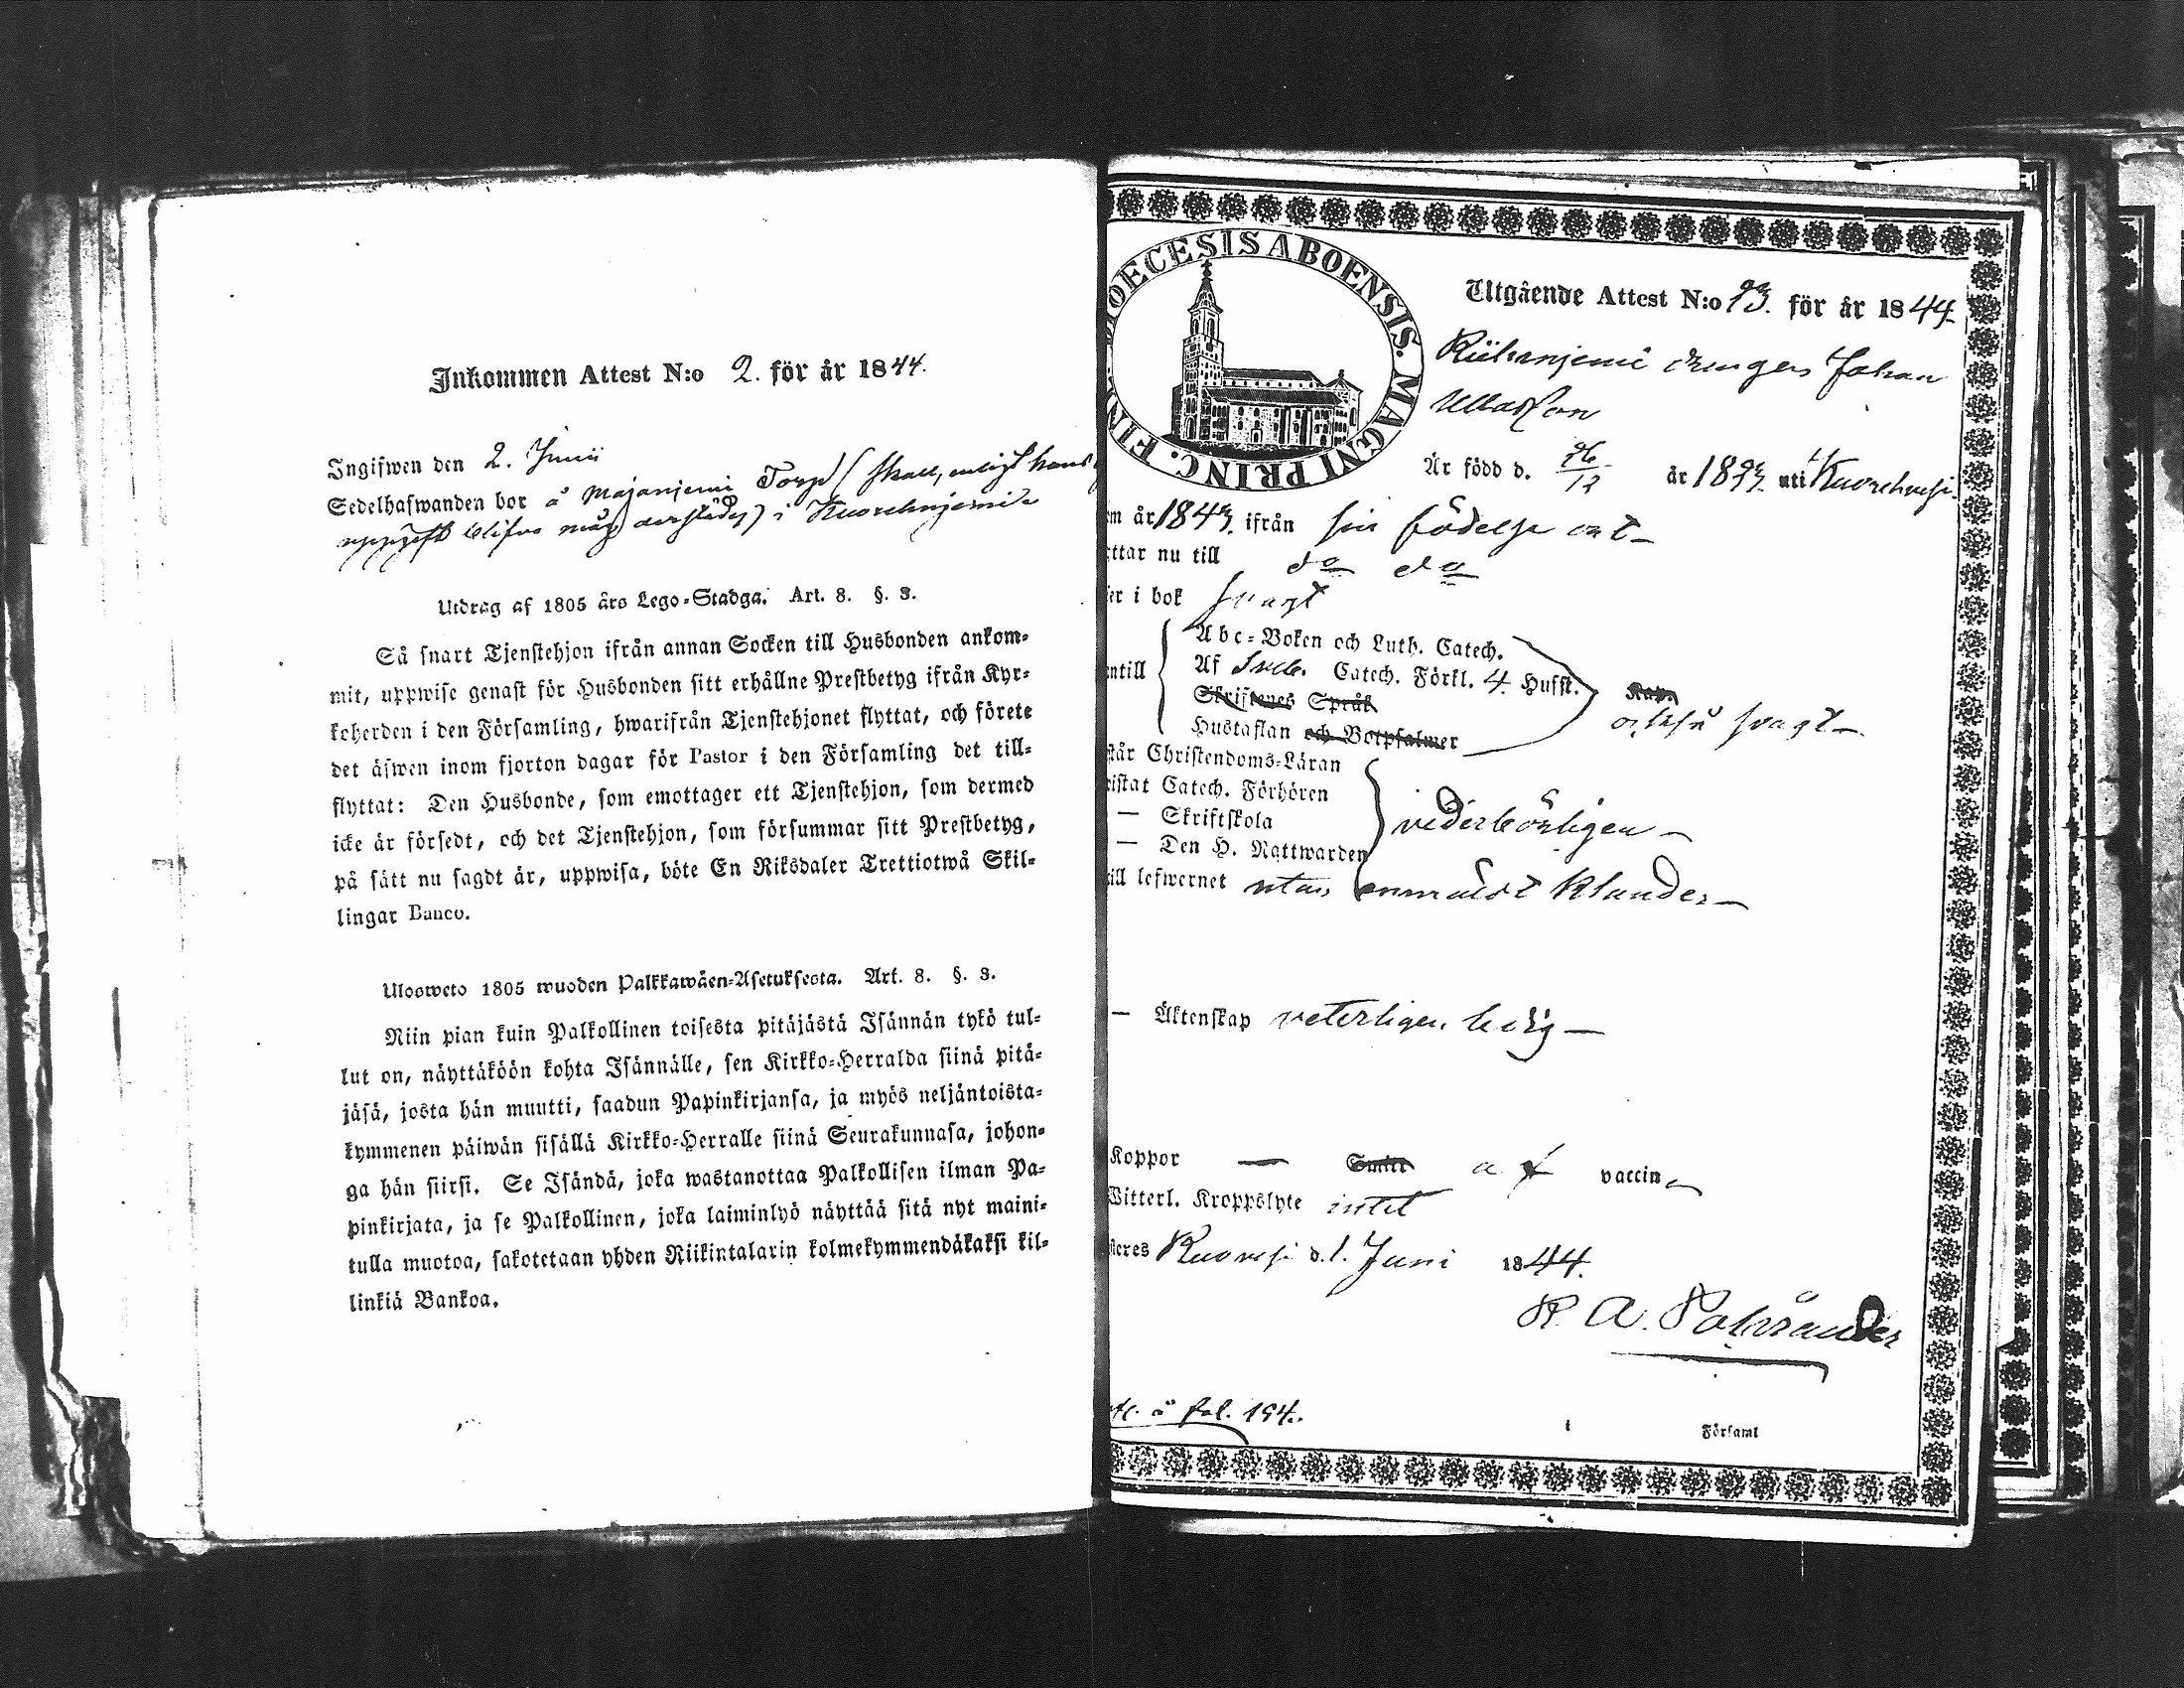 Inkommen Attest N:o 2. för år 1844.
Ingifwen den 2. Junii
Sedelhafwanden bor å Majanjemi Torp (skall, enligt hans
uppgift blifva måg derstädes) i Kuorehnjemi
Utdrag af 1805 års Lego-Stadga. Art. 8. §. 3.
Så snart Tjenstehjon ifrån annan Socken till Husbonden ankom-
mit, uppwise genast för Husbonden sitt erhållne Prestbetyg ifrån Kyr-
koherden i den Församling, hwarifrån Tjenstehjonet flyttat, och förete
det äfwen inom fjorton dagar för Pastor i den Församling det till-
flyttat: Den Husbonde, som emottager ett Tjenstehjon, som dermed
icke är försedt, och det Tjenstehjon, som försummar sitt Prestbetyg,
på sätt nu sagdt är, uppwisa, böte En Riksdaler Trettiotwå Skil-
lingar Banco.
Ulosweto 1805 wuoden Palkkawäen-Asetuksesta. Art. 8. §. 3.
Niin pian kuin Palkollinen toisesta pitäjästä Isännän tykö tul-
lut on, näyttäköön kohta Isännälle, sen Kirkko-Herralda siinä pitä-
jäsä, josta hän muutti, saadun Papinkirjansa, ja myös neljäntoista-
kymmenen päiwän sisällä Kirkko-Herralle siinä Seurakunnasa, johon-
ga hän siirsi. Se Isändä, joka wastanottaa Palkollisen ilman Pa-
pinkirjata, ja se Palkollinen, joka laiminlyö näyttää sitä nyt maini-
tulla muotoa, sakotetaan yhden Riikintalarin kolmekymmendäkaksi kil-
linkiä Bankoa.
DIOECESIS ABOENSIS. MAGNI PRINC. FIN
Utgående Attest N:o 93. för år 1844.
Riihanjemi drengen Johan
Är född d. 26/12 år uti Kuorehvesi
m år 1843. ifrån sin födelse ort
ttar nu till do do
er i bok svagt
ntill
Abc-Boken och Luth. Catech.
Af Sveb. Catech. Förkl. 4. Hufst. Kap.
Skriftenes Språk
också svagt
Hustaflan och Botpsalmer
står Christendoms-Läran
istat Catech. Förhören
— Skriftskola
vederbörligen
— Den H. Nattwarden
ill lefwernet utan anmäldt klander
— Äktenskap veterligen ledig
Koppor — Smitt af vaccin
Witterl. Kroppslyte intet
teres Kuorevesi d. 1. Juni 1844.
å fol. 194.
i Församl